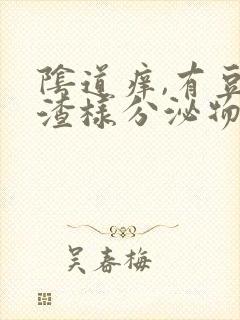 陰道痒,有豆
渣樣分泌物
吴春梅